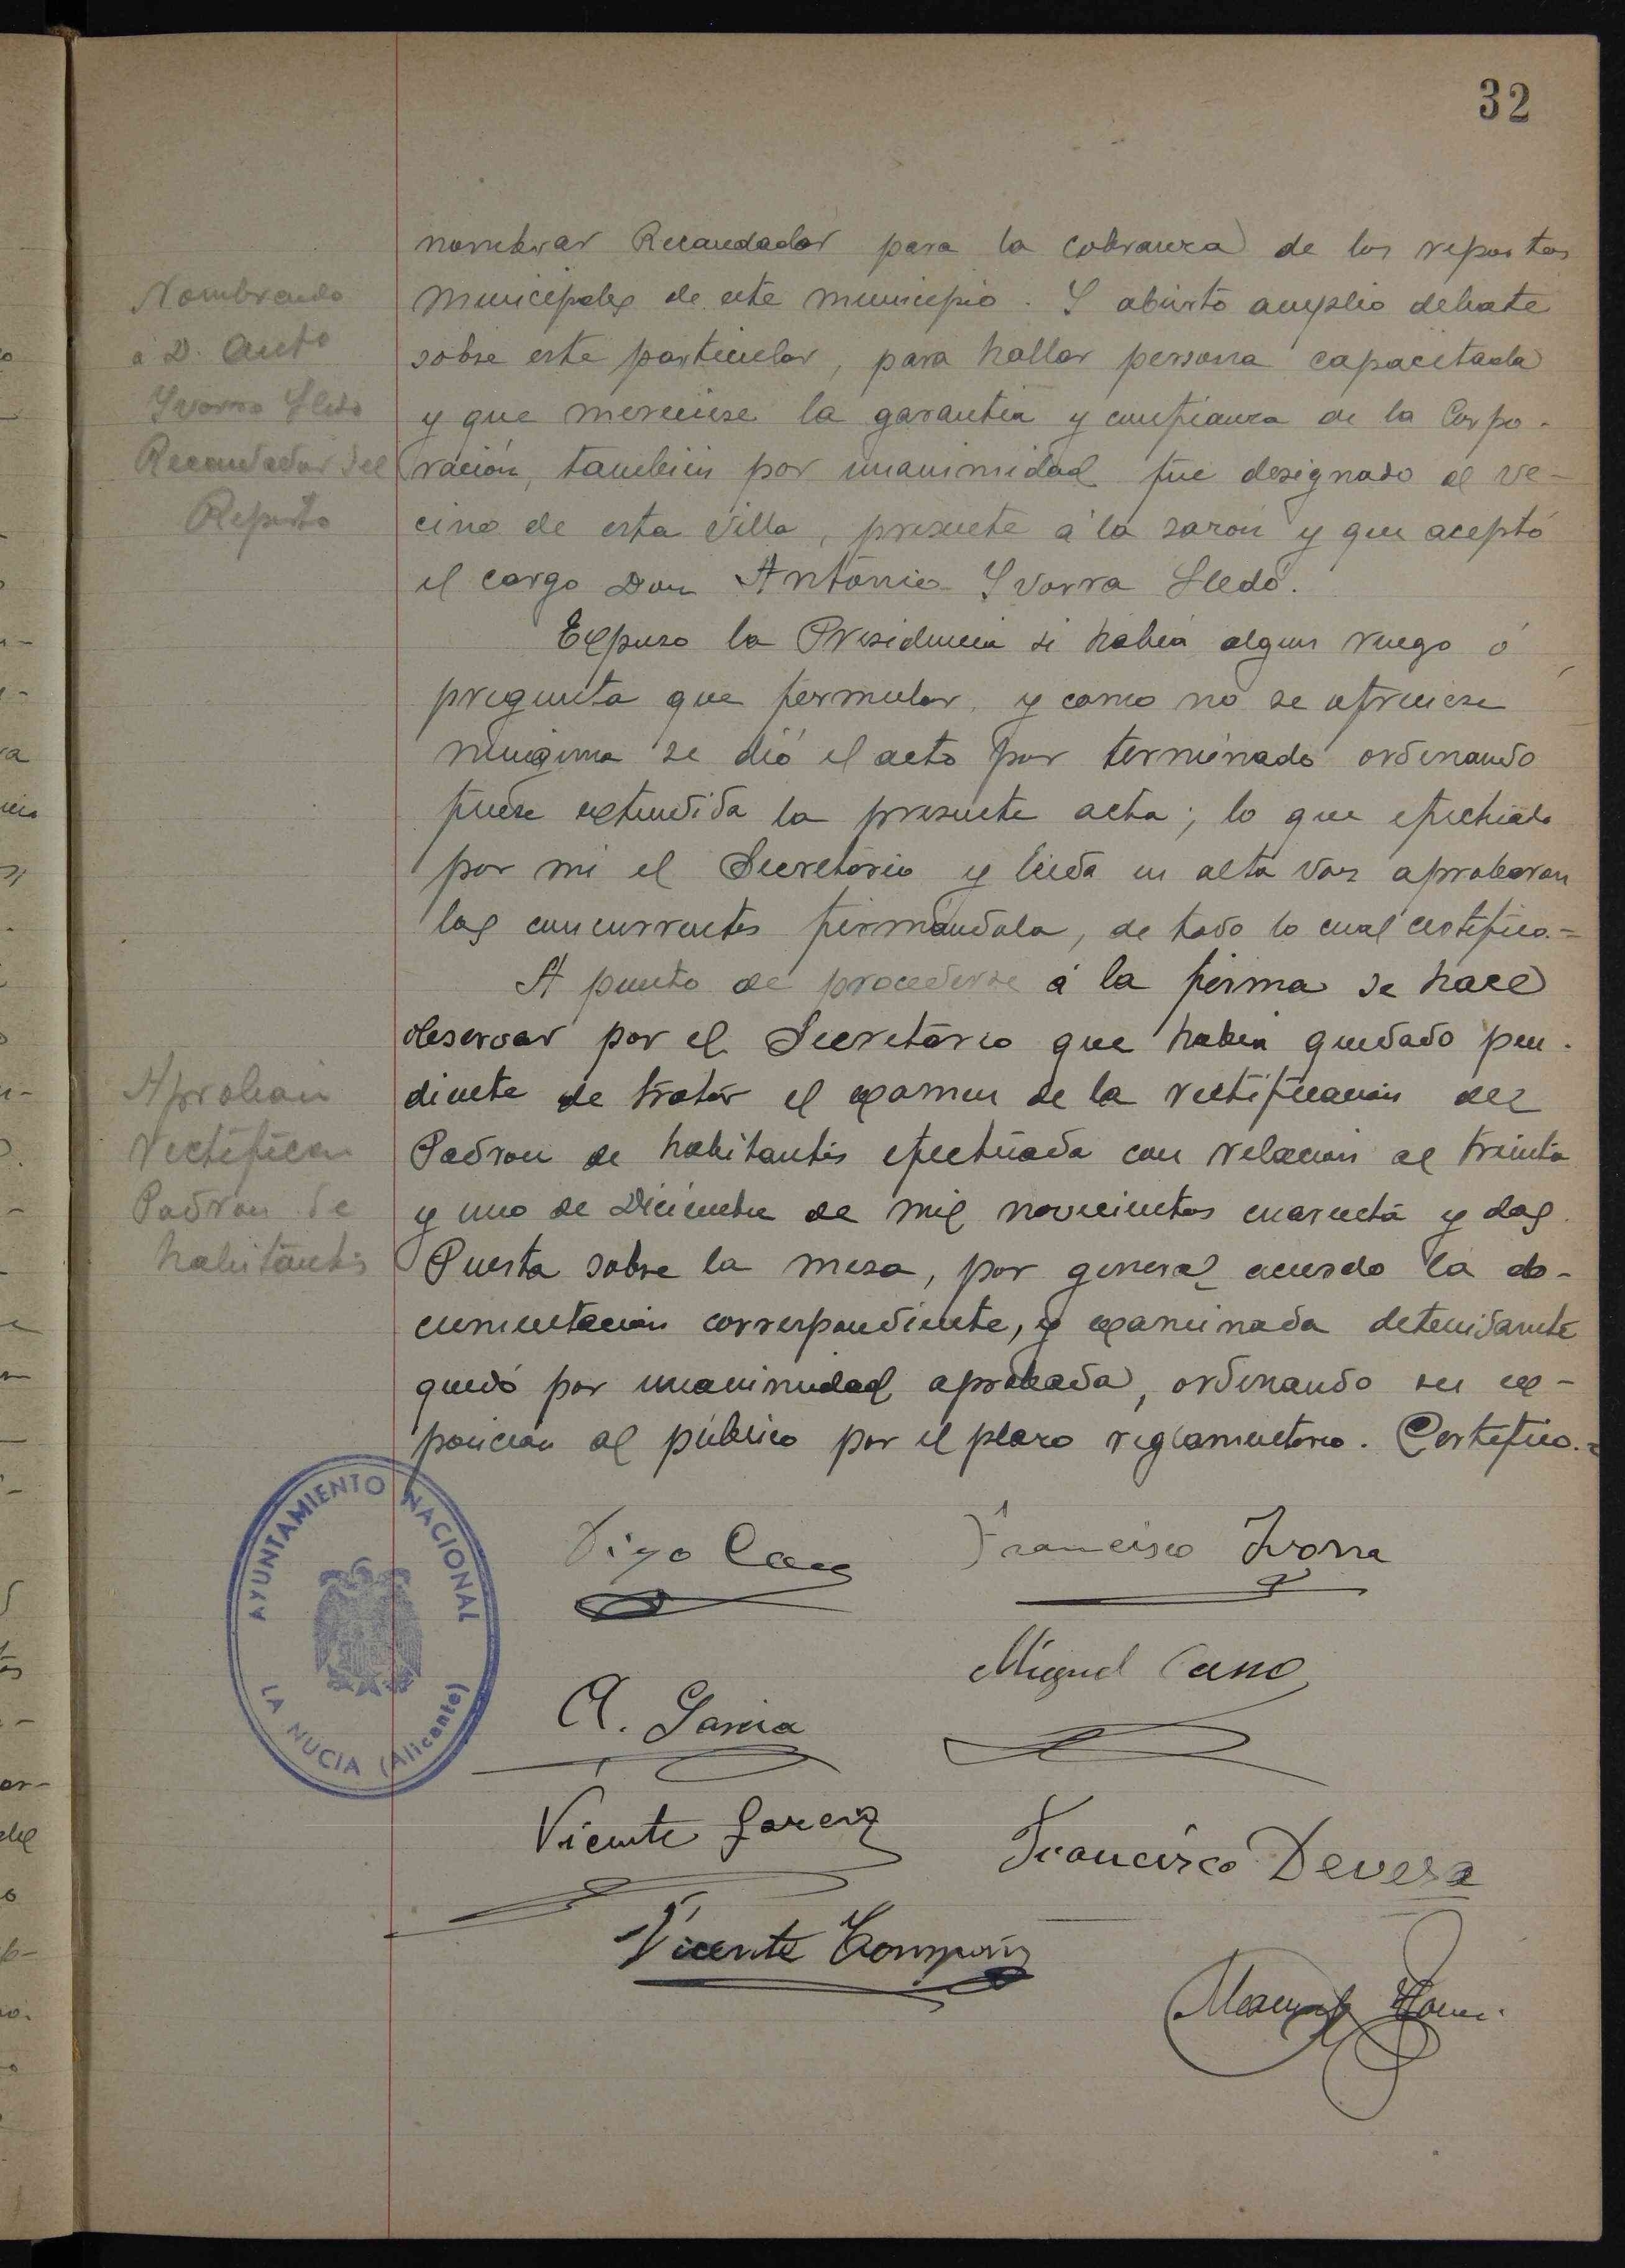 32
nombrar Recaudador para la cobranza de los repartos
Nombrando
municipales de este municipio. Y abierto amplio debate
a D. Antº
sobre este particular, para hallar persona capacitada
Yvorra Lledo
y que mereciese la garantia y confianza de la Corpo-
Recaudador del
ración, tambien por unanimidad fue designado el ve-
Reparto
cino de esta Villa, presente á la sazón y que aceptó
el cargo Don Antonio Yvorra Lledó.
Expuso la Presidencia si habia algun ruego ó
pregunta que formular, y como no se ofreciese
ninguna se dió el acto por terminado ordenando
fuese extendida la presente acta; lo que efectuado
por mi el Secretario y leida en alta voz aprobaron
los concurrentes firmandola, de todo lo cual certifico.=
A punto de procederse á la firma se hace
observar por el Secretario que habia quedado pen-
Aprobar
diente de tratar el examen de la rectificación del
rectificación
Padron de habitantes efectuada con relacion al treinta
Padron de
y uno de Diciembre de mil novecientos cuarenta y dos.
habitantes
Puesta sobre la mesa, por general acuerdo la do-
cumentacion correspondiente, y examinada detenidamente
quedó por unanimidad aprobada, ordenando su ex-
posicion al público por el plazo reglamentario. Certifico.=
AYUNTAMIENTO NACIONAL
LA NUCIA (Alicante)
Francisco Ivorra
Miguel Cano
A. Garcia
Vicente Garcia
Francisco Devesa
Vicente